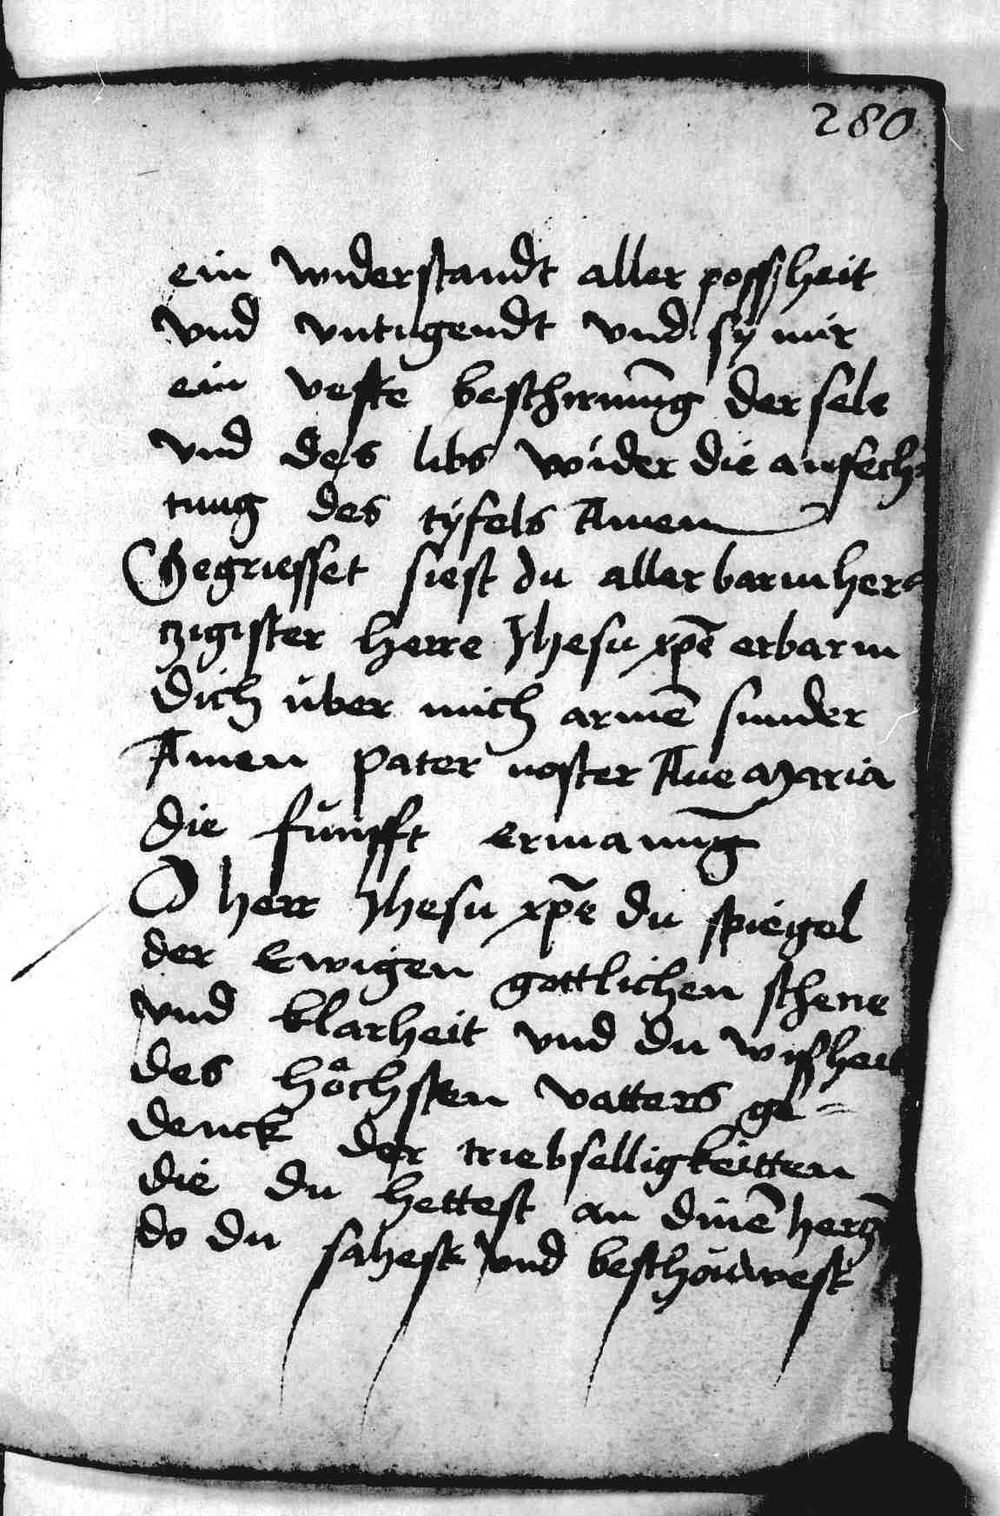 280
ein widerstandt aller possheit
vnd vntugendt vnd sÿ mir
ein veste beschirmūg der sele
vnd des libs wider die anfech=
tung des tÿfels Amen
Gegriesset siest du aller barmher=
tzigister herre Jhesu xp̄e erbarm
dich über mich armē sunder
Amen pater noster Aue Maria
die fünfft ermanūg
O herr Jhesu xp̄e du spiegel
der ewigen gottlichen schene
vnd klarheit vnd du wissheit
des hoͤchsten vatters ge=
denck der triebselligkeitten
die du hettest an dinē hertzē
do du sahest vnd beschöuwest